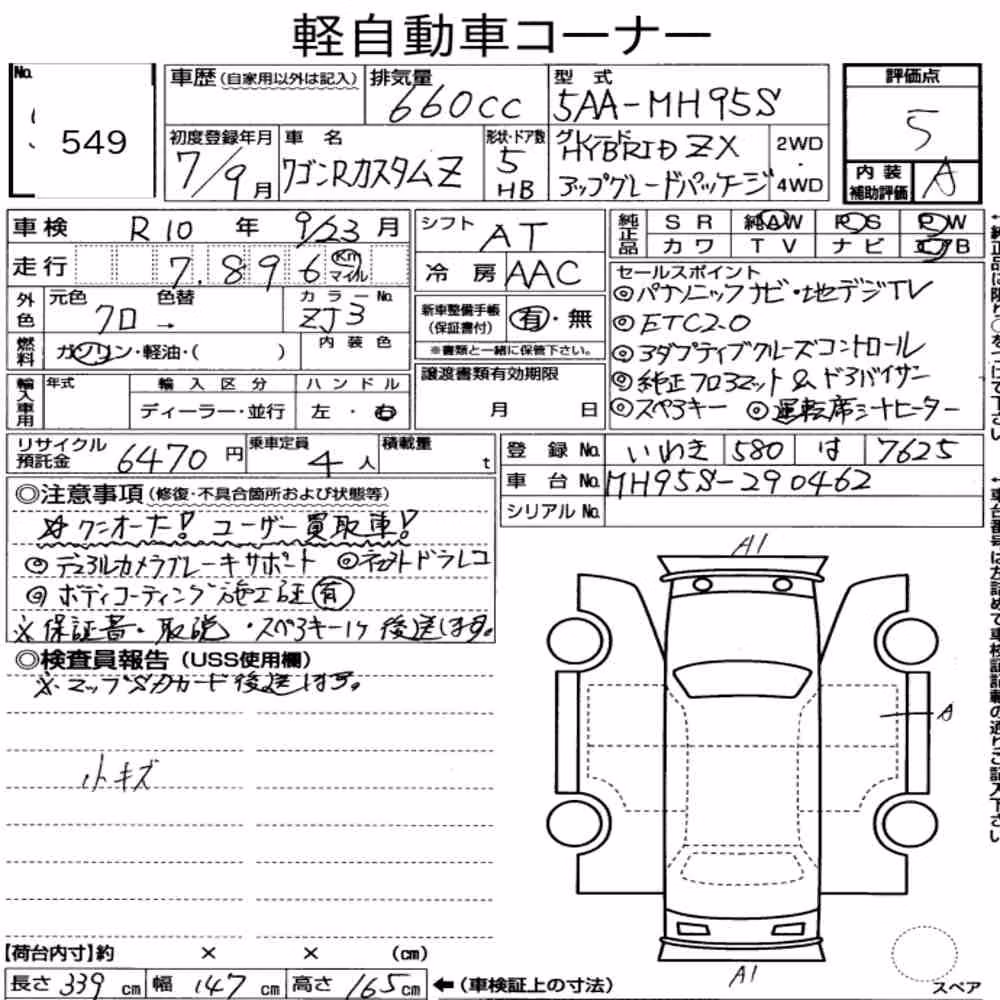 軽自動車コーナー
No. 549
車歴 (自家用以外は記入) 排気量 660cc 型式 5AA-MH95S 評価点 5
初度登録年月 7/9月 車名 ワゴンRカスタムZ 形状・ドア数 5 HB グレード HYBRID ZX アップグレードパッケージ 2WD・4WD
内装補助評価 A
車検 R10 年 9/23 月 シフト AT 純正品 SR 純AW PS PW
カワ TV ナビ エアB
走行 7,896 Km マイル 冷房 AAC
外色 元色 クロ → 色替 カラーNo. ZJ3
新車整備手帳 (保証書付) 有・無
※書類と一緒に保管下さい。
燃料 ガソリン・軽油・( ) 内装色
セールスポイント
◎パナソニックナビ・地デジTV
◎ETC2.0
◎アダプティブクルーズコントロール
◎純正フロアマット & ドアバイザー
◎スペアキー ◎運転席シートヒーター
輸入車用 年式 輸入区分 ハンドル
ディーラー・並行 左・右
譲渡書類有効期限
月 日
リサイクル預託金 6470円 乗車定員 4人 積載量 t
登録No. いわき 580 は 7625
車台No. MH95S-290462
シリアルNo.
◎注意事項 (修復・不具合箇所および状態等)
☆ワンオーナー! ユーザー買取車!
◎デュアルカメラブレーキサポート ◎ドラレコ
◎ボディコーティング施工証 有
※保証書・取説・スペアキー1ヶ後送します。
◎検査員報告 (USS使用欄)
※マップSDカード後送します。
小キズ
A1
A
A1
【荷台内寸】約 × × (cm)
長さ 339 cm 幅 147 cm 高さ 165 cm ←(車検証上の寸法)
スペア